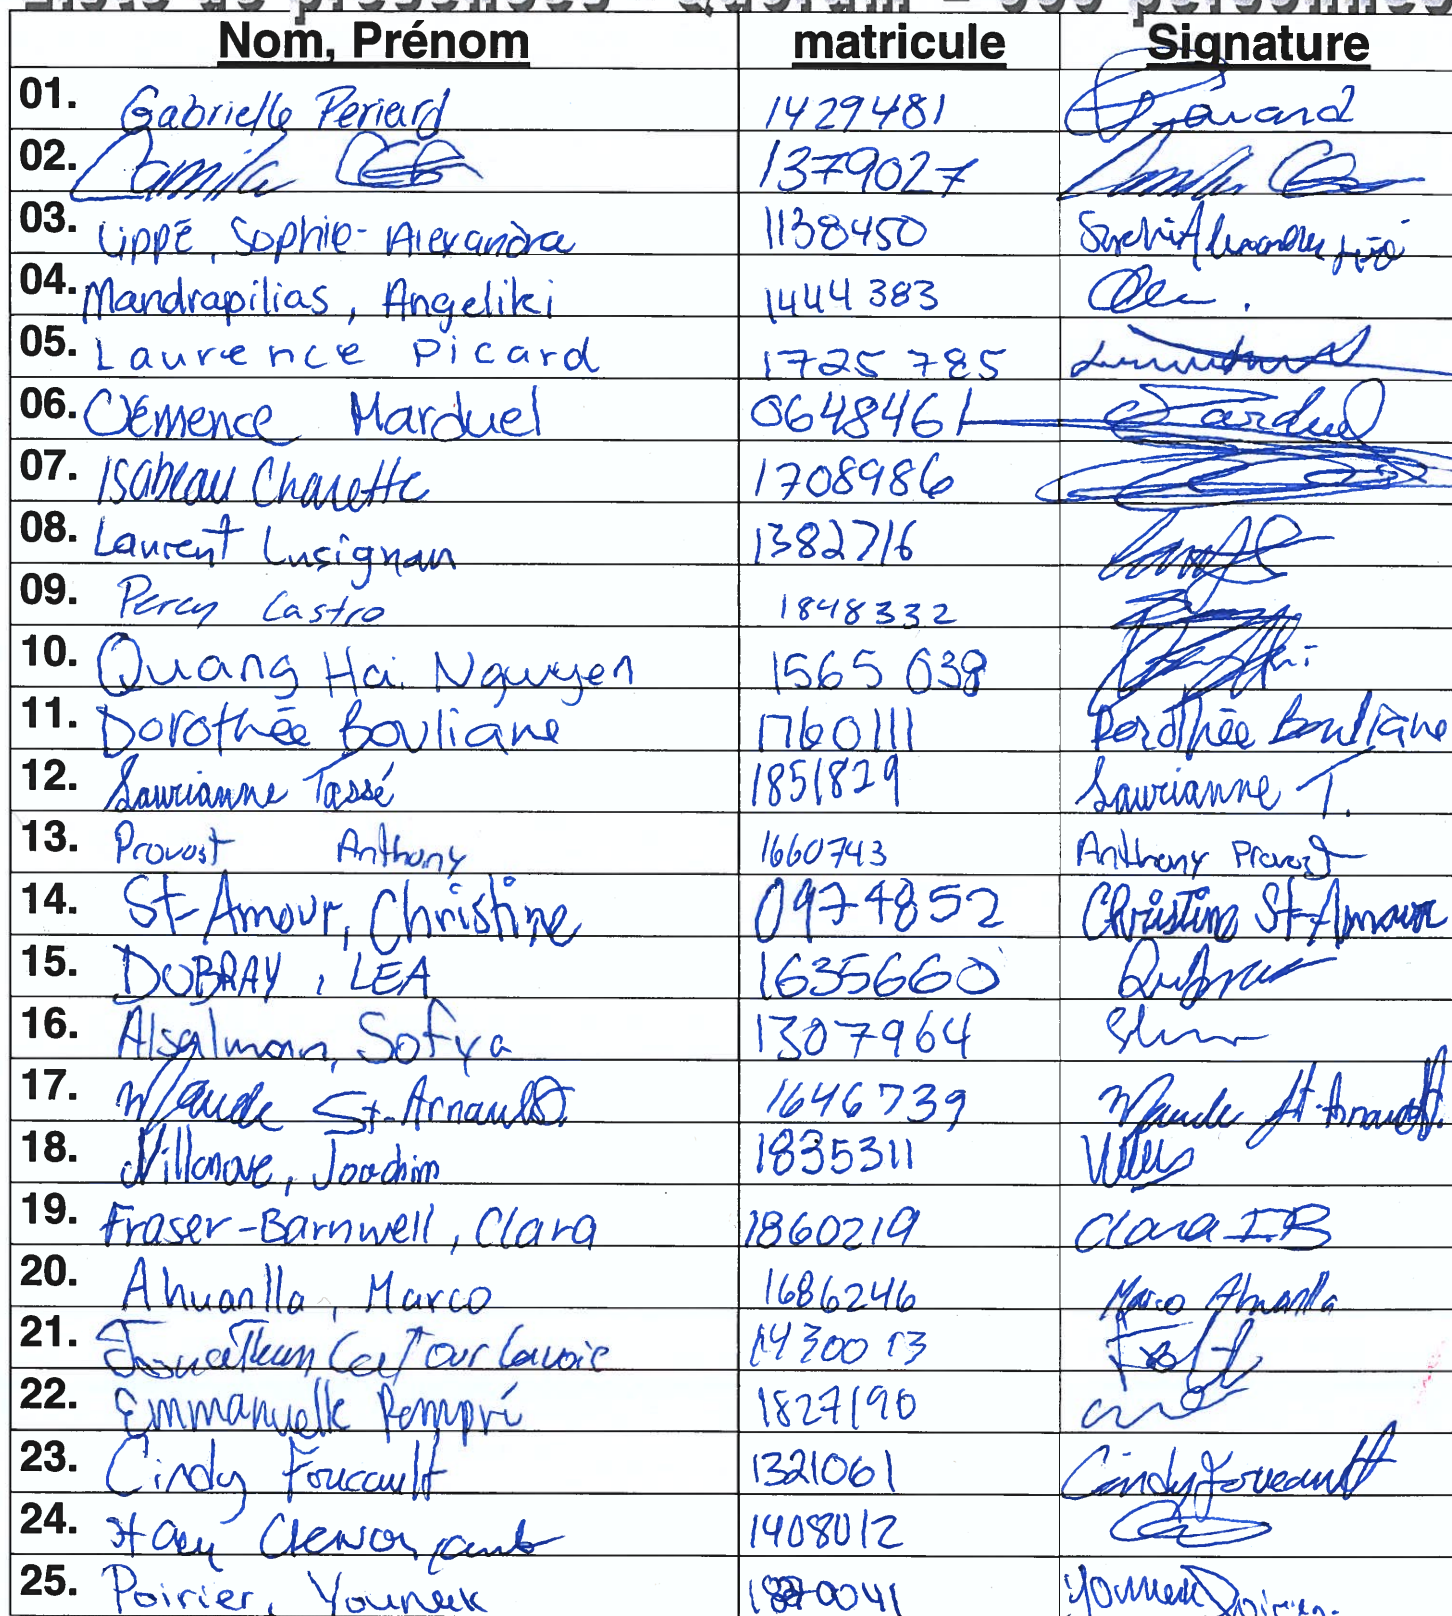 Liste de présences Quorum - 300 personnes
Nom, Prénom matricule Signature
01. Gabrielle Periard 1429481
02. Camille 1379027
03. Lippé, Sophie-Alexandra 1138450
04. Mandrapilias, Angeliki 1444383
05. Laurence Picard 1725785
06. Clémence Marduel 0648461 Marduel
07. Isabeau Charette 1708986
08. Laurent Lusignan 1382716
09. Percy Castro 1848332
10. Quang Hai Nguyen 1565038
11. Dorothée Bouliane 1760111 Dorothée Bouliane
12. Laurianne Tassé 1851829 Laurianne T.
13. Provost Anthony 1660743 Anthony Provost
14. St-Amour, Christine 0974852 Christine St-Amour
15. DUBRAY, LEA 1635660
16. Alsalman, Sofya 1307964
17. Maude St-Arnault 1646739 Maude St-Arnault
18. Villanove, Joachim 1835311
19. Fraser-Barnwell, Clara 1860219 Clara F.B
20. Ahuanlla, Marco 1686246 Marco Ahuanlla
21.
22. Emmanuelle 1827190
23. Cindy Foucault 1321061 Cindy Foucault
24. 1408012
25. Poirier,